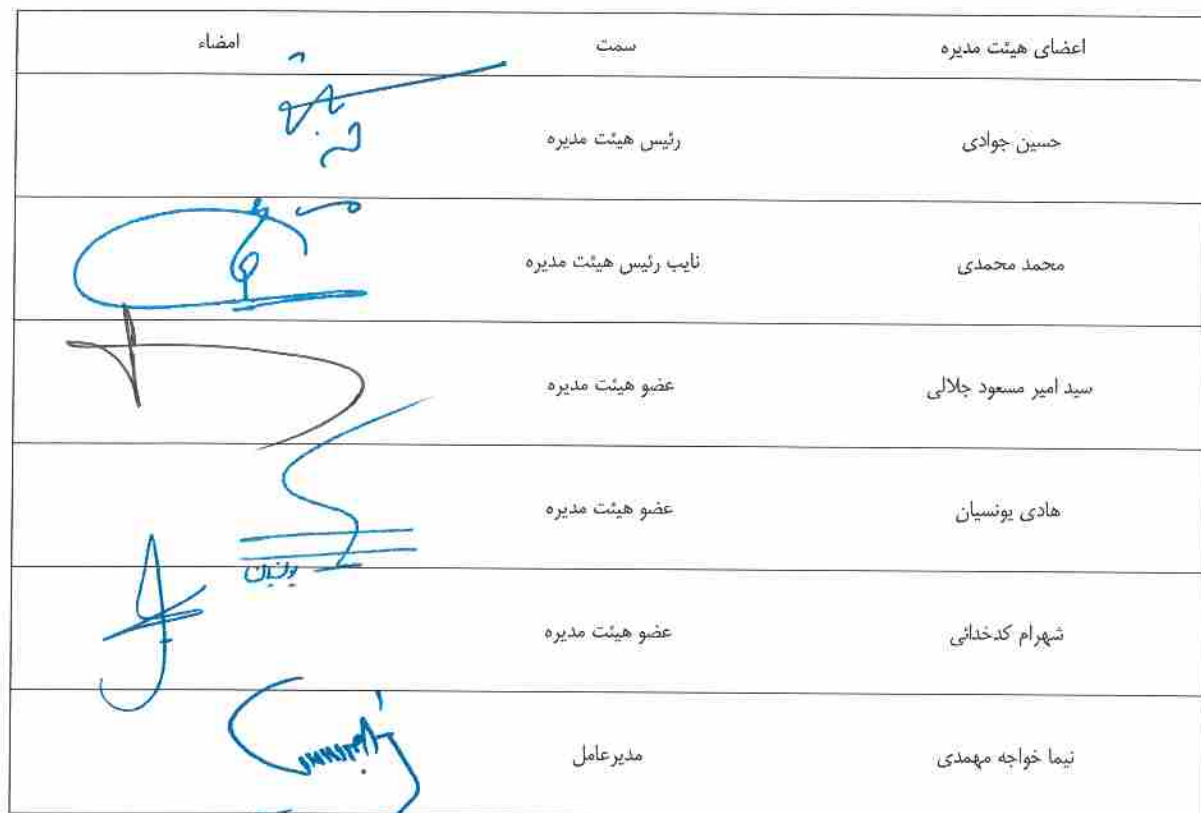 اعضای هیئت مدیره سمت امضاء
حسین جوادی رئیس هیئت مدیره
محمد محمدی نایب رئیس هیئت مدیره
سید امیر مسعود جلالی عضو هیئت مدیره
هادی یونسیان عضو هیئت مدیره
یونسیان
شهرام کدخدائی عضو هیئت مدیره
نیما خواجه مهمدی مدیرعامل